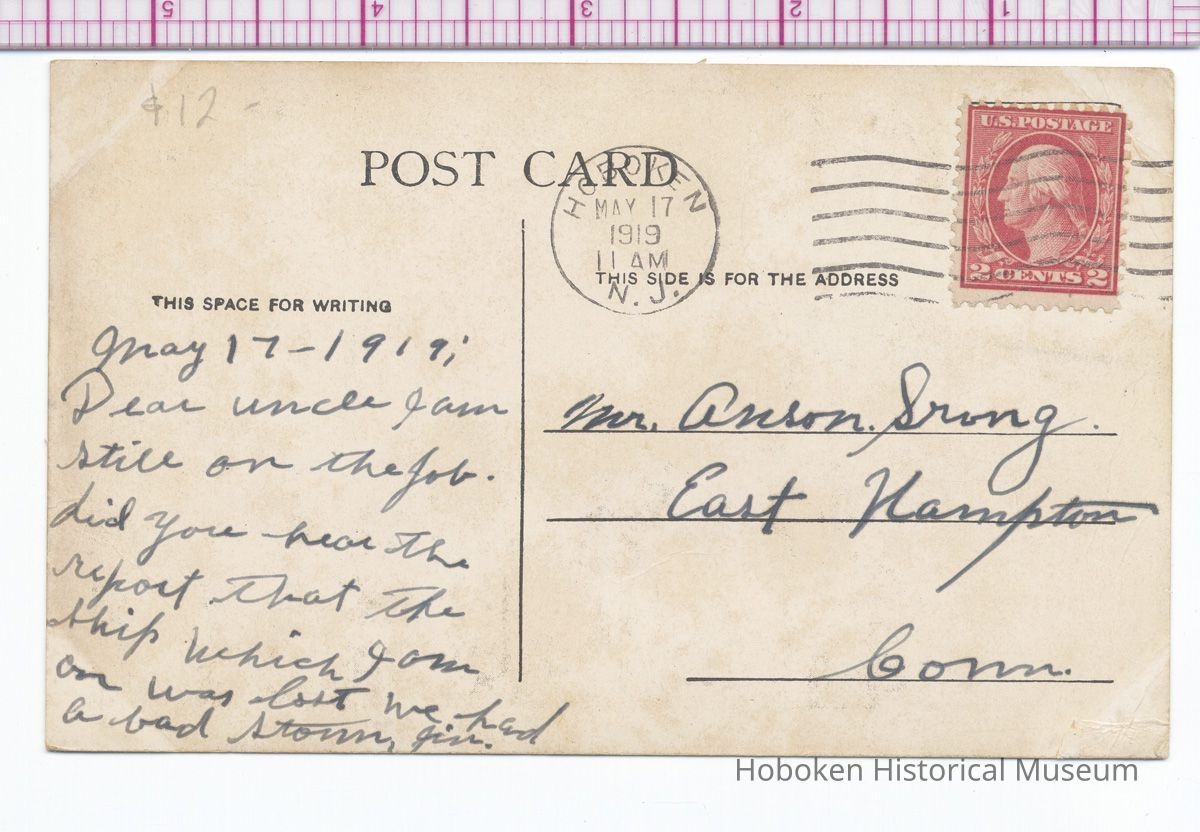 5 4 3 2 1
$12-
POST CARD
HOBOKEN
MAY 17
1919
11 AM
N. J.
U.S. POSTAGE
2 CENTS 2
THIS SIDE IS FOR THE ADDRESS
THIS SPACE FOR WRITING
May 17-1919;
Dear uncle I am
still on the job.
did you hear the
report that the
ship which I am
on was lost we had
a bad storm,
Mr. Anson. Srong.
East Hampton
Conn.
Hoboken Historical Museum